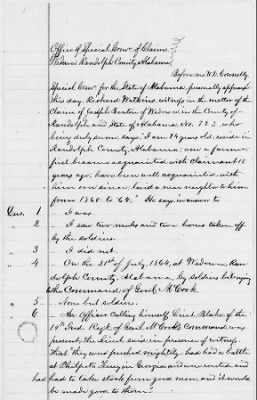 Office of Special Com'r. of Claims
Wedowee Randolph County, Alabama
Before me W.D. Connelly
Special Com'r for the State of Alabama, personally appeared
this day, Richard Watkins, witness in the matter of the
Claim of Joseph Benton of Wedowee in the County of
Randolph and State of Alabama, No. 723 who
being duly sworn, says: I am 74 years old, reside in
Randolph County, Alabama, am a farmer
first became acquainted with claimant 18
years ago, have been well acquainted with
him ever since; lived a near neighbor to him
from 1860 to '64." He says in answer to
Int. 1 I was.
" 2 - I saw two mules and two horses taken off
by the soldiers.
" 3 I did not.
" 4 - On the 31st of July, 1864, at Wedowee, Ran-
dolph County, Alabama, by soldiers belonging
to the Command of Genl. McCook.
" 5 - None but soldiers.
" 6 - An Officer Calling himself Lieut. Blake of the
Regt. of Genl. McCook's Command was
present; the Lieut. said in presence of witness,
that "they were pushed mightily, had had a battle
at Philpot's Ferry in Georgia and were routed and
had had to take stock from good men, and it would
be made good to them."